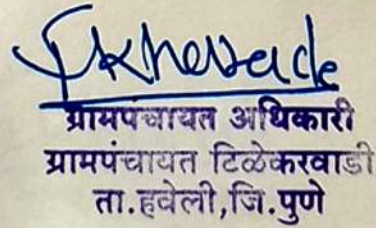 ग्रामपंचायत अधिकारी
ग्रामपंचायत टिळेकरवाडी
ता.हवेली,जि.पुणे